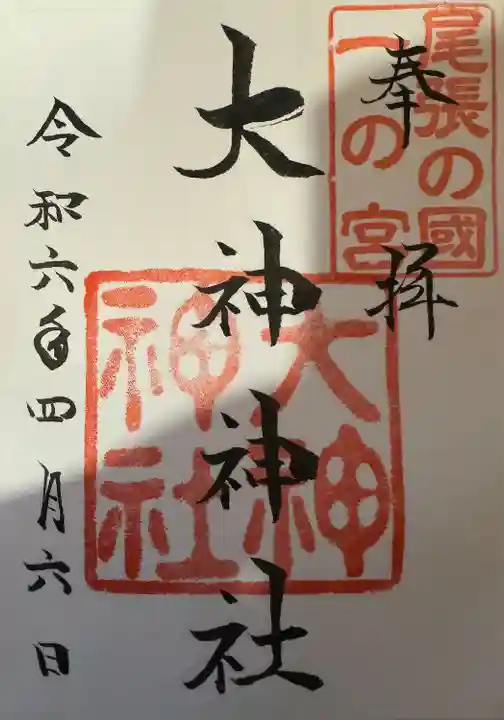 奉拝
尾張の國
一の宮
大神神社
大神
神社
令和六年四月六日